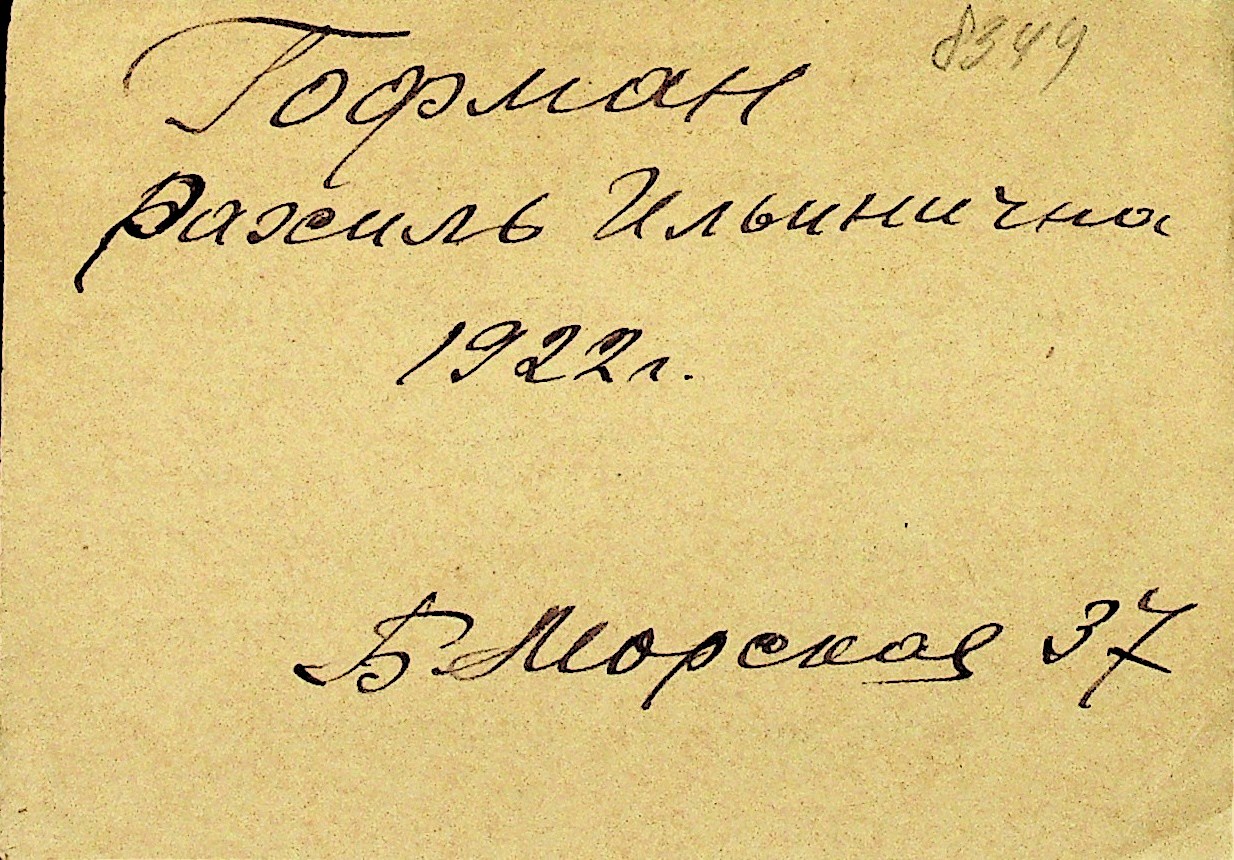 8344
Гофман
Рахиль Ильинична
1922г.
Б. Морская 37